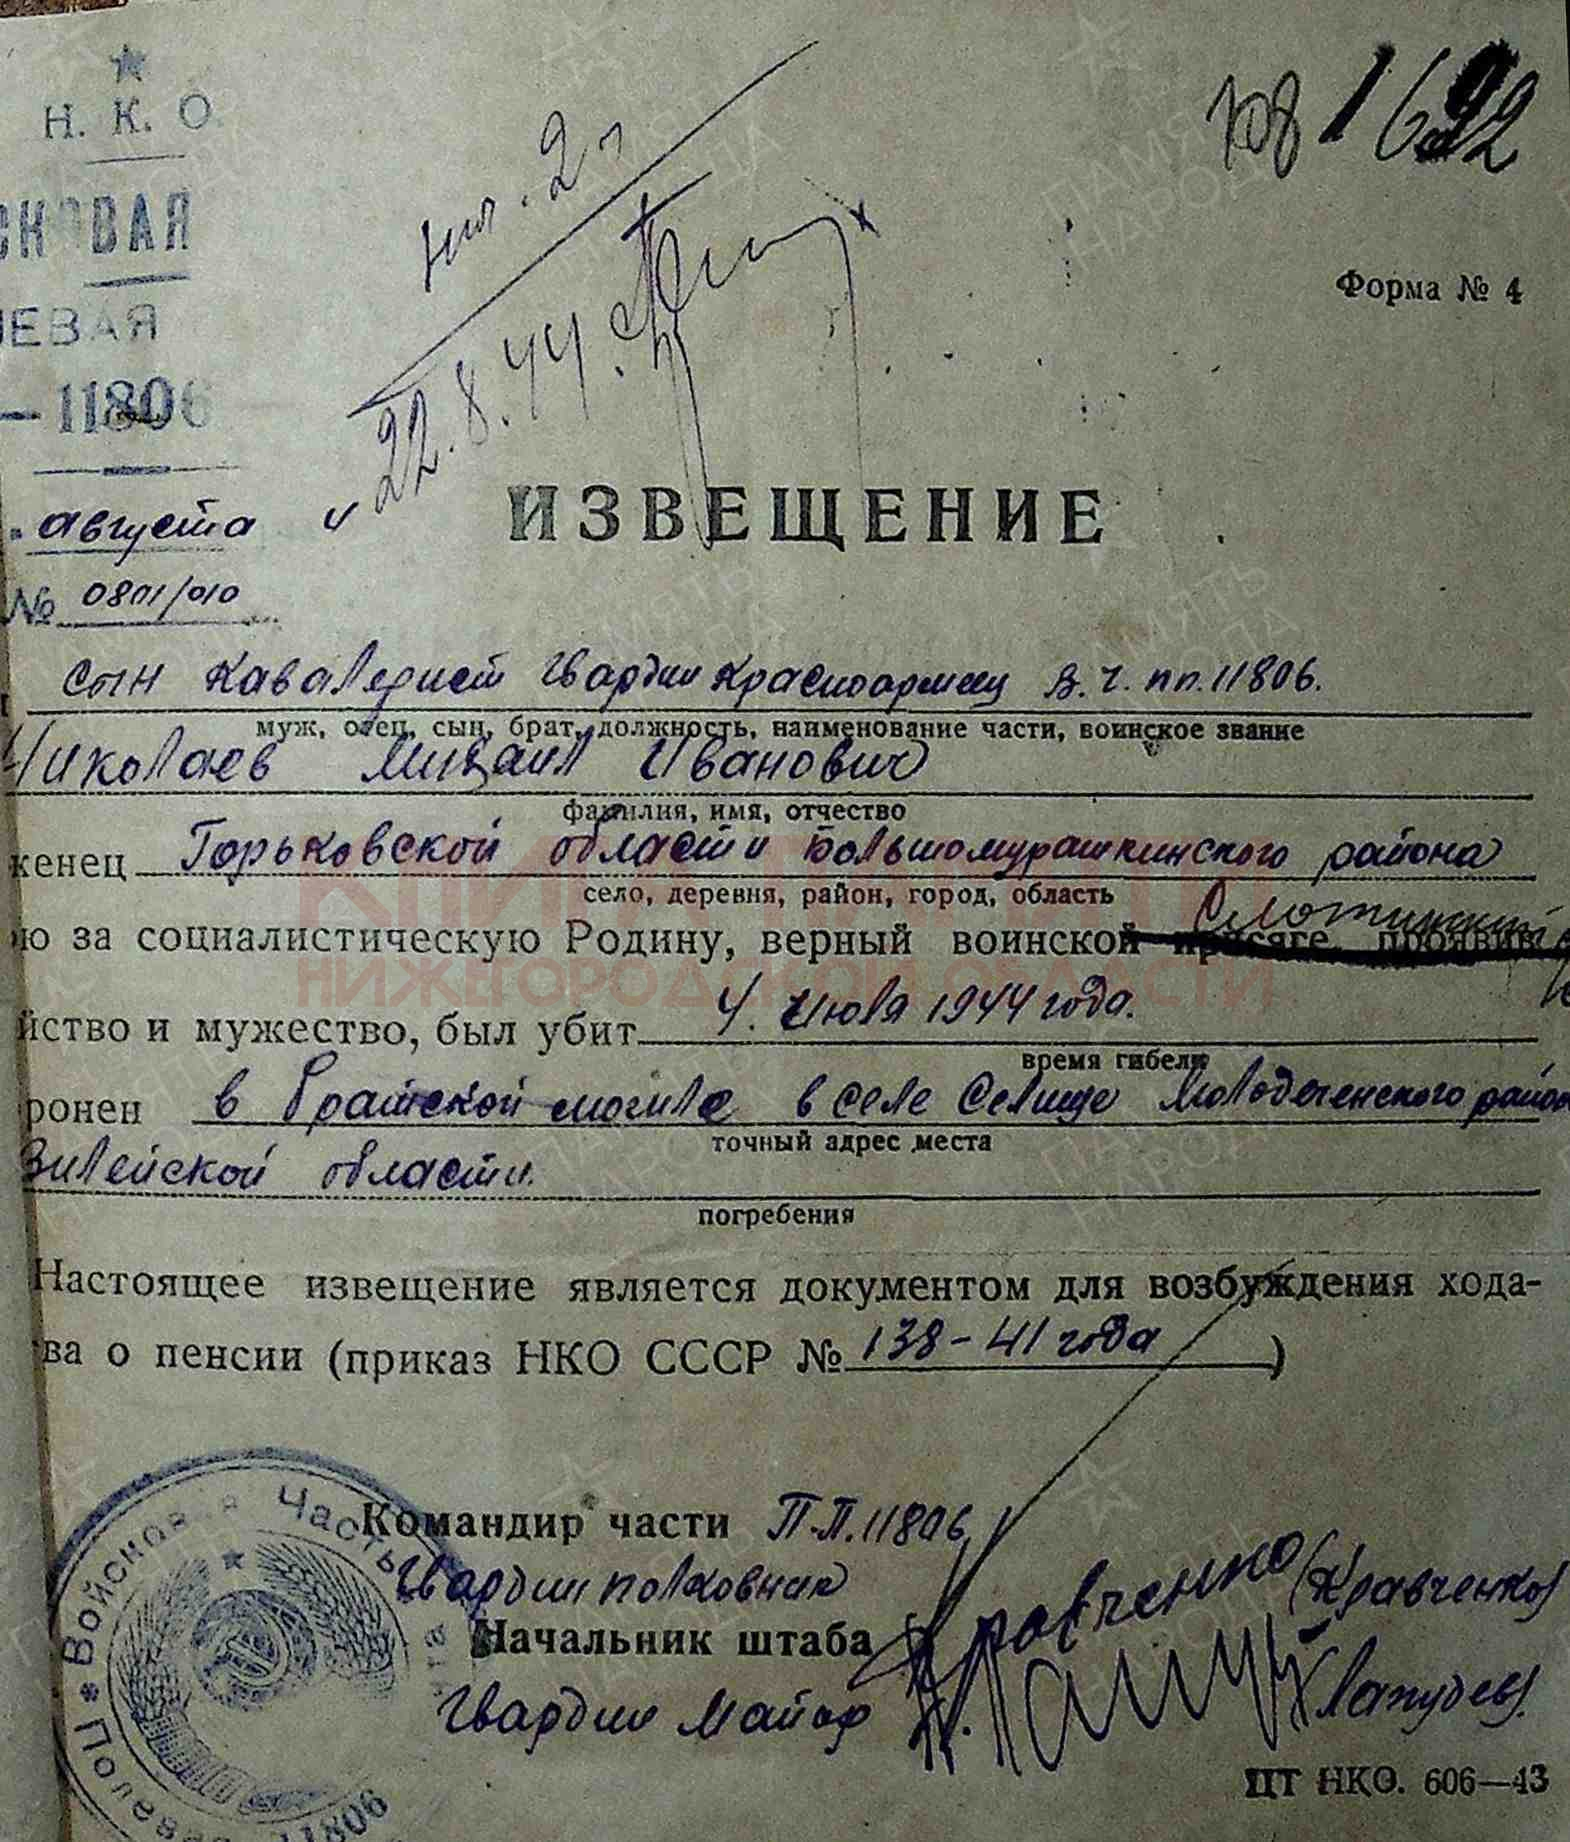 Н. К. О.
СКОВАЯ
ЕВАЯ
—11806
1692
Форма № 4
22.8.44.
августа
ИЗВЕЩЕНИЕ
№ 0801/010
сын кавалерист гвардии красноармеец в. ч. пп. 11806.
муж, отец, сын, брат, должность, наименование части, воинское звание
Николаев Михаил Иванович
фамилия, имя, отчество
женец Горьковской области Большомурашкинского района
село, деревня, район, город, область
ю за социалистическую Родину, верный воинской присяге, проявив
йство и мужество, был убит 4. Июля 1944 года.
время гибели
ронен в братской могиле в селе Селище Молодеченского район
точный адрес места
Вилейской области.
погребения
Настоящее извещение является документом для возбуждения хода-
ва о пенсии (приказ НКО СССР № 138-41 года)
Командир части П.П. 11806
Гвардии полковник Кравченко (Кравченко)
Начальник штаба
Гвардии майор
Войсковая Часть
Полевая
11806
ЦТ НКО. 606—43
КНИГА ПАМЯТИ
НИЖЕГОРОДСКОЙ ОБЛАСТИ
ПАМЯТЬ НАРОДА